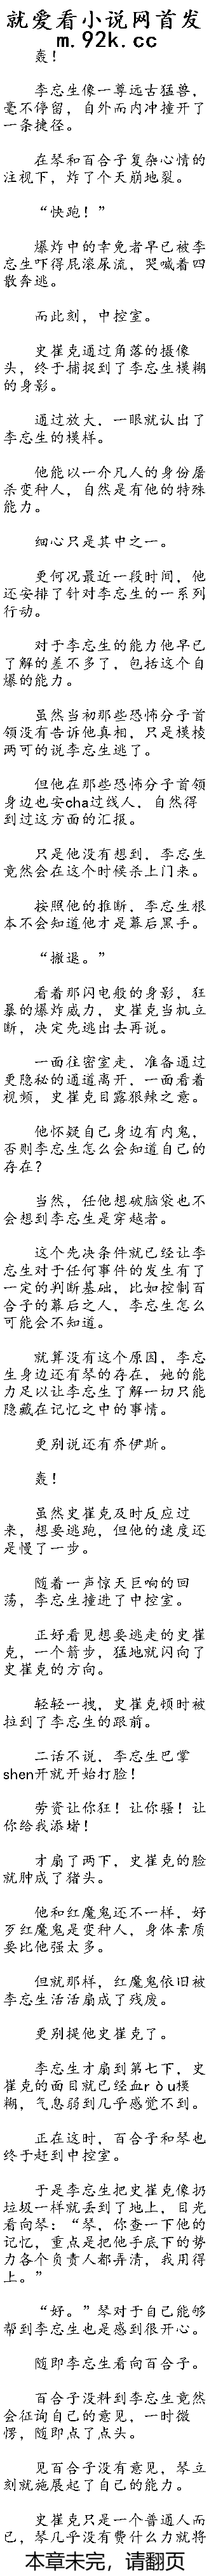 就爱看小说网首发
m.92k.cc
轰！
李忘生像一尊远古猛兽，
毫不停留，自外而内冲撞开了
一条捷径。
在琴和百合子复杂心情的
注视下，炸了个天崩地裂。
“快跑！”
爆炸中的幸免者早已被李
忘生吓得屁滚尿流，哭喊着四
散奔逃。
而此刻，中控室。
史崔克通过角落的摄像
头，终于捕捉到了李忘生模糊
的身影。
通过放大，一眼就认出了
李忘生的模样。
他能以一介凡人的身份屠
杀变种人，自然是有他的特殊
能力。
细心只是其中之一。
更何况最近一段时间，他
还安排了针对李忘生的一系列
行动。
对于李忘生的能力他早已
了解的差不多了，包括这个自
爆的能力。
虽然当初那些恐怖分子首
领没有告诉他真相，只是模棱
两可的说李忘生逃了。
但他在那些恐怖分子首领
身边也安cha过线人，自然得
到过这方面的汇报。
只是他没有想到，李忘生
竟然会在这个时候杀上门来。
按照他的推断，李忘生根
本不会知道他才是幕后黑手。
“搬退。”
看着那闪电般的身影，狂
暴的爆炸威力，史崔克当机立
断，决定先逃出去再说。
一面往密室走，准备通过
更隐秘的通道离开，一面看着
视频，史崔克目露狠辣之意。
他怀疑自己身边有内鬼，
否则李忘生怎么会知道自己的
存在？
当然，任他想破脑袋也不
会想到李忘生是穿越者。
这个先决条件就已经让李
忘生对于任何事件的发生有了
一定的判断基础，比如控制百
合子的幕后之人，李忘生怎么
可能会不知道。
就算没有这个原因，李忘
生身边还有琴的存在，她的能
力足以让李忘生了解一切只能
隐藏在记忆之中的事情。
更别说还有乔伊斯。
轰！
虽然史崔克及时反应过
来，想要逃跑，但他的速度还
是慢了一步。
随着一声惊天巨响的回
荡，李忘生撞进了中控室。
正好看见想要逃走的史崔
克，一个箭步，猛地就闪向了
史崔克的方向。
轻轻一拽，史崔克顷时被
拉到了李忘生的跟前。
二话不说，李忘生巴掌
shen开就开始打脸！
劳资让你狂！让你骚！让
你给我添堵！
才扇了两下，史崔克的脸
就肿成了猪头。
他和红魔鬼还不一样，好
歹红魔鬼是变种人，身体素质
要比他强太多。
但就那样，红魔鬼依旧被
李忘生活活扇成了残废。
更别提他史崔克了。
李忘生才扇到第七下，史
崔克的面目就已经血ròu模
糊，气息弱到几乎感觉不到。
正在这时，百合子和琴也
终于赶到中控室。
于是李忘生把史崔克像扔
垃圾一样就丢到了地上，目光
看向琴：“琴，你查一下他的
记忆，重点是把他手底下的势
力各个负责人都弄清，我用得
上。”
“好。”琴对于自己能够
帮到李忘生也是感到很开心。
随即李忘生看向百合子。
百合子没料到李忘生竟然
会征询自己的意见，一时微
愣，随即点了点头。
见百合子没有意见，琴立
刻就施展起了自己的能力。
史崔克只是一个普通人而
已，琴几乎没有费什么力就将
本章未完，请翻页